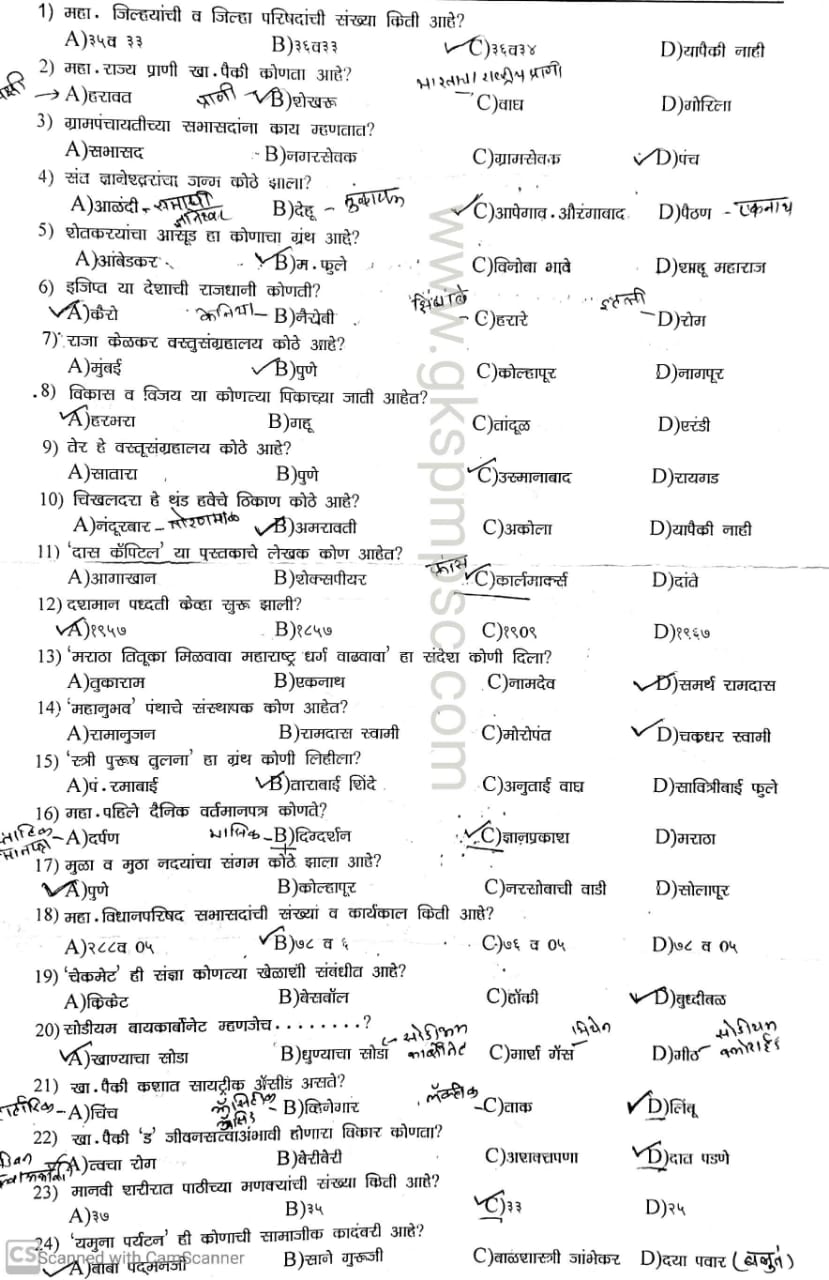 1) महा. जिल्हयांची व जिल्हा परिषदांची संख्या किती आहे?
A)३५व ३३ B)३६व३३ C)३६व३४ D)यापैकी नाही
2) महा.राज्य प्राणी खा.पैकी कोणता आहे? भारताचा राष्ट्रीय प्राणी
A)हरावत प्राणी B)शेखरू C)वाघ D)गोरिला
3) ग्रामपंचायतीच्या सभासदांना काय म्हणतात?
A)सभासद B)नगरसेवक C)ग्रामसेवक D)पंच
4) संत ज्ञानेश्वरांचा जन्म कोठे झाला?
A)आळंदी - समाधी B)देहू - तुकाराम C)आपेगाव.औरंगाबाद D)पैठण - एकनाथ
5) शेतकरयांचा आसूड हा कोणाचा ग्रंथ आहे?
A)आंबेडकर B)म.फुले C)विनोबा भावे D)शाहू महाराज
6) इजिप्त या देशाची राजधानी कोणती?
A)कैरो केनिया- B)नैरोबी - C)हरारे इटली -D)रोम
7) राजा केळकर वस्तुसंग्रहालय कोठे आहे?
A)मुंबई B)पुणे C)कोल्हापूर D)नागपूर
8) विकास व विजय या कोणत्या पिकाच्या जाती आहेत?
A)हरभरा B)गहू C)तांदूळ D)एरंडी
9) तेर हे वस्तूसंग्रहालय कोठे आहे?
A)सातारा B)पुणे C)उस्मानाबाद D)रायगड
10) चिखलदरा हे थंड हवेचे ठिकाण कोठे आहे?
A)नंदूरबार - तोरणमाळ B)अमरावती C)अकोला D)यापैकी नाही
11) 'दास कॅपिटल' या पुस्तकाचे लेखक कोण आहेत?
A)आगाखान B)शेक्सपीयर C)कार्लमार्क्स D)दांते
12) दशमान पध्दती केव्हा सुरू झाली?
A)१९५७ B)१८५७ C)१९०९ D)१९६७
13) 'मराठा तितूका मिळवावा महाराष्ट्र धर्म वाढवावा' हा संदेश कोणी दिला?
A)तुकाराम B)एकनाथ C)नामदेव D)समर्थ रामदास
14) 'महानुभव' पंथाचे संस्थापक कोण आहेत?
A)रामानुजन B)रामदास स्वामी C)मोरोपंत D)चक्रधर स्वामी
15) 'स्त्री पुरूष तुलना' हा ग्रंथ कोणी लिहीला?
A)पं.रमाबाई B)ताराबाई शिंदे C)अनुताई वाघ D)सावित्रीबाई फुले
16) महा.पहिले दैनिक वर्तमानपत्र कोणते?
- A)दर्पण मासिक - B)दिग्दर्शन C)ज्ञानप्रकाश D)मराठा
17) मुळा व मुठा नदयांचा संगम कोठे झाला आहे?
A)पुणे B)कोल्हापूर C)नरसोबाची वाडी D)सोलापूर
18) महा.विधानपरिषद सभासदांची संख्या व कार्यकाल किती आहे?
A)२८८व ०५ B)७८ व ६ C)७६ व ०५ D)७८ व ०५
19) 'चेकमेट' ही संज्ञा कोणत्या खेळाशी संबंधीत आहे?
A)क्रिकेट B)बेसबॉल C)हॉकी D)बुध्दीबळ
20) सोडीयम बायकार्बोनेट म्हणजेच........?
A)खाण्याचा सोडा B)धुण्याचा सोडा सोडीयम कार्बोनेट C)मार्श गॅस मिथेन D)मीठ सोडीयम क्लोराईड
21) खा.पैकी कशात सायट्रीक अ‍ॅसीड असते?
टार्टारिक-A)चिंच - B)व्हिनेगार लॅक्टीक -C)ताक D)लिंबू
22) खा.पैकी 'ड' जीवनसत्वाअंभावी होणारा विकार कोणता?
A)त्वचा रोग B)बेरीबेरी C)अशक्तपणा D)दात पडणे
23) मानवी शरीरात पाठीच्या मणक्यांची संख्या किती आहे?
A)३७ B)३५ C)३३ D)२५
24) 'यमुना पर्यटन' ही कोणाची सामाजीक कादंबरी आहे?
A)बाबा पद्मनजी B)साने गुरूजी C)बाळशास्त्री जांभेकर D)दया पवार (बलुतं)
www.gkspmpsc.com
CS Scanned with CamScanner